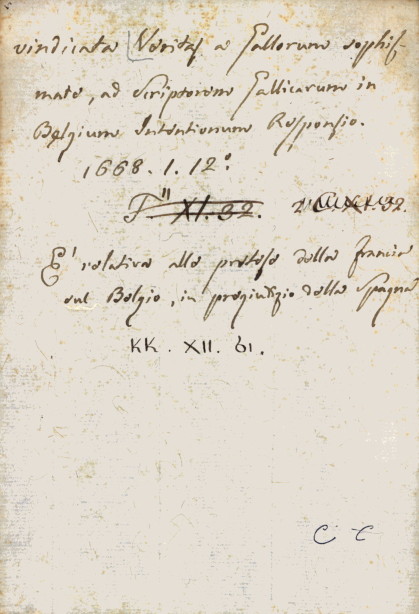 vindicata Veritas a Gallorum sophis-
mate, ad Scriptorem Gallicarum in
Belgium Intentionum Responsio.
1668. 1. 12°.
F" XI. 32.
E' relativa alle pretese della francia
sul Belgio, in pregiudizio della Spagna
KK. XII. 61.
C - C